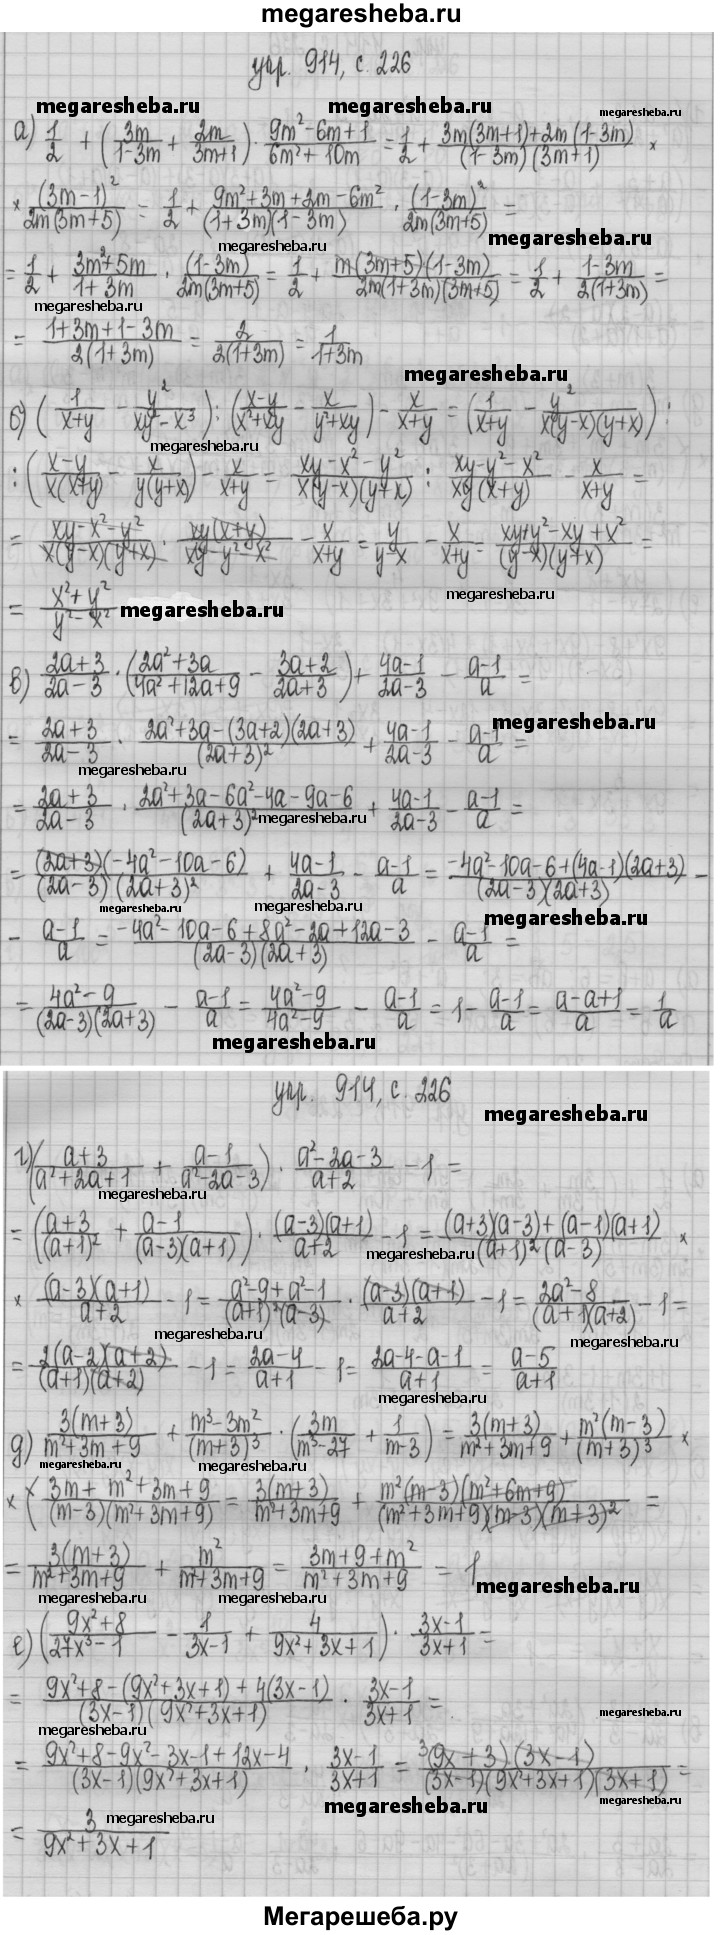 megaresheba.ru
упр. 914, с. 226
megaresheba.ru megaresheba.ru megaresheba.ru
а) 1/2 + (3m/(1-3m) + 2m/(3m+1)) · (9m²-6m+1)/(6m²+10m) = 1/2 + (3m(3m+1)+2m(1-3m))/((1-3m)(3m+1)) ×
× (3m-1)²/(2m(3m+5)) = 1/2 + (9m²+3m+2m-6m²)/((1+3m)(1-3m)) · (1-3m)²/(2m(3m+5)) =
megaresheba.ru megaresheba.ru
= 1/2 + (3m²+5m)/(1+3m) · (1-3m)/(2m(3m+5)) = 1/2 + (m(3m+5)(1-3m))/(2m(1+3m)(3m+5)) = 1/2 + (1-3m)/(2(1+3m)) =
megaresheba.ru
= (1+3m+1-3m)/(2(1+3m)) = 2/(2(1+3m)) = 1/(1+3m)
megaresheba.ru
б) (1/(x+y) - y²/(xy²-x³)) : ((x-y)/(x²+xy) - x/(y²+xy)) - x/(x+y) = (1/(x+y) - y²/(x(y-x)(y+x))) :
megaresheba.ru
: ((x-y)/(x(x+y)) - x/(y(y+x))) - x/(x+y) = (xy-x²-y²)/(x(y-x)(y+x)) : (xy-y²-x²)/(xy(x+y)) - x/(x+y) =
= (xy-x²-y²)/(x(y-x)(y+x)) · (xy(x+y))/(xy-y²-x²) - x/(x+y) = y/(y-x) - x/(x+y) = (xy+y²-xy+x²)/((y-x)(y+x)) =
megaresheba.ru
= (x²+y²)/(y²-x²)
megaresheba.ru
в) (2a+3)/(2a-3) · ((2a²+3a)/(4a²+12a+9) - (3a+2)/(2a+3)) + (4a-1)/(2a-3) - (a-1)/a =
megaresheba.ru
= (2a+3)/(2a-3) · (2a²+3a-(3a+2)(2a+3))/(2a+3)² + (4a-1)/(2a-3) - (a-1)/a =
megaresheba.ru
= (2a+3)/(2a-3) · (2a²+3a-6a²-4a-9a-6)/(2a+3)² + (4a-1)/(2a-3) - (a-1)/a =
megaresheba.ru
= ((2a+3)(-4a²-10a-6))/((2a-3)(2a+3)²) + (4a-1)/(2a-3) - (a-1)/a = (-4a²-10a-6+(4a-1)(2a+3))/((2a-3)(2a+3)) -
megaresheba.ru megaresheba.ru megaresheba.ru
- (a-1)/a = (-4a²-10a-6+8a²-2a+12a-3)/((2a-3)(2a+3)) - (a-1)/a =
= (4a²-9)/((2a-3)(2a+3)) - (a-1)/a = (4a²-9)/(4a²-9) - (a-1)/a = 1 - (a-1)/a = (a-a+1)/a = 1/a
megaresheba.ru
упр. 914, с. 226
megaresheba.ru
г) ((a+3)/(a²+2a+1) + (a-1)/(a²-2a-3)) · (a²-2a-3)/(a+2) - 1 =
megaresheba.ru
= ((a+3)/(a+1)² + (a-1)/((a-3)(a+1))) · ((a-3)(a+1))/(a+2) - 1 = ((a+3)(a-3)+(a-1)(a+1))/((a+1)²(a-3)) ×
megaresheba.ru
× ((a-3)(a+1))/(a+2) - 1 = (a²-9+a²-1)/((a+1)²(a-3)) · ((a-3)(a+1))/(a+2) - 1 = (2a²-8)/((a+1)(a+2)) - 1 =
megaresheba.ru megaresheba.ru
= (2(a-2)(a+2))/((a+1)(a+2)) - 1 = (2a-4)/(a+1) - 1 = (2a-4-a-1)/(a+1) = (a-5)/(a+1)
megaresheba.ru
д) (3(m+3))/(m²+3m+9) + (m³-3m²)/(m+3)³ · (3m/(m³-27) + 1/(m-3)) = (3(m+3))/(m²+3m+9) + (m²(m-3))/(m+3)³ ×
megaresheba.ru megaresheba.ru
× (3m+m²+3m+9)/((m-3)(m²+3m+9)) = (3(m+3))/(m²+3m+9) + (m²(m-3)(m²+6m+9))/((m²+3m+9)(m-3)(m+3)²) =
= (3(m+3))/(m²+3m+9) + m²/(m²+3m+9) = (3m+9+m²)/(m²+3m+9) = 1
megaresheba.ru megaresheba.ru megaresheba.ru
е) ((9x²+8)/(27x³-1) - 1/(3x-1) + 4/(9x²+3x+1)) · (3x-1)/(3x+1) =
= (9x²+8-(9x²+3x+1)+4(3x-1))/((3x-1)(9x²+3x+1)) · (3x-1)/(3x+1) =
megaresheba.ru megaresheba.ru
= (9x²+8-9x²-3x-1+12x-4)/((3x-1)(9x²+3x+1)) · (3x-1)/(3x+1) = ³((9x+3)(3x-1))/((3x-1)(9x²+3x+1)(3x+1)) =
megaresheba.ru megaresheba.ru
= 3/(9x²+3x+1)
megaresheba.ru
Мегарешеба.ру